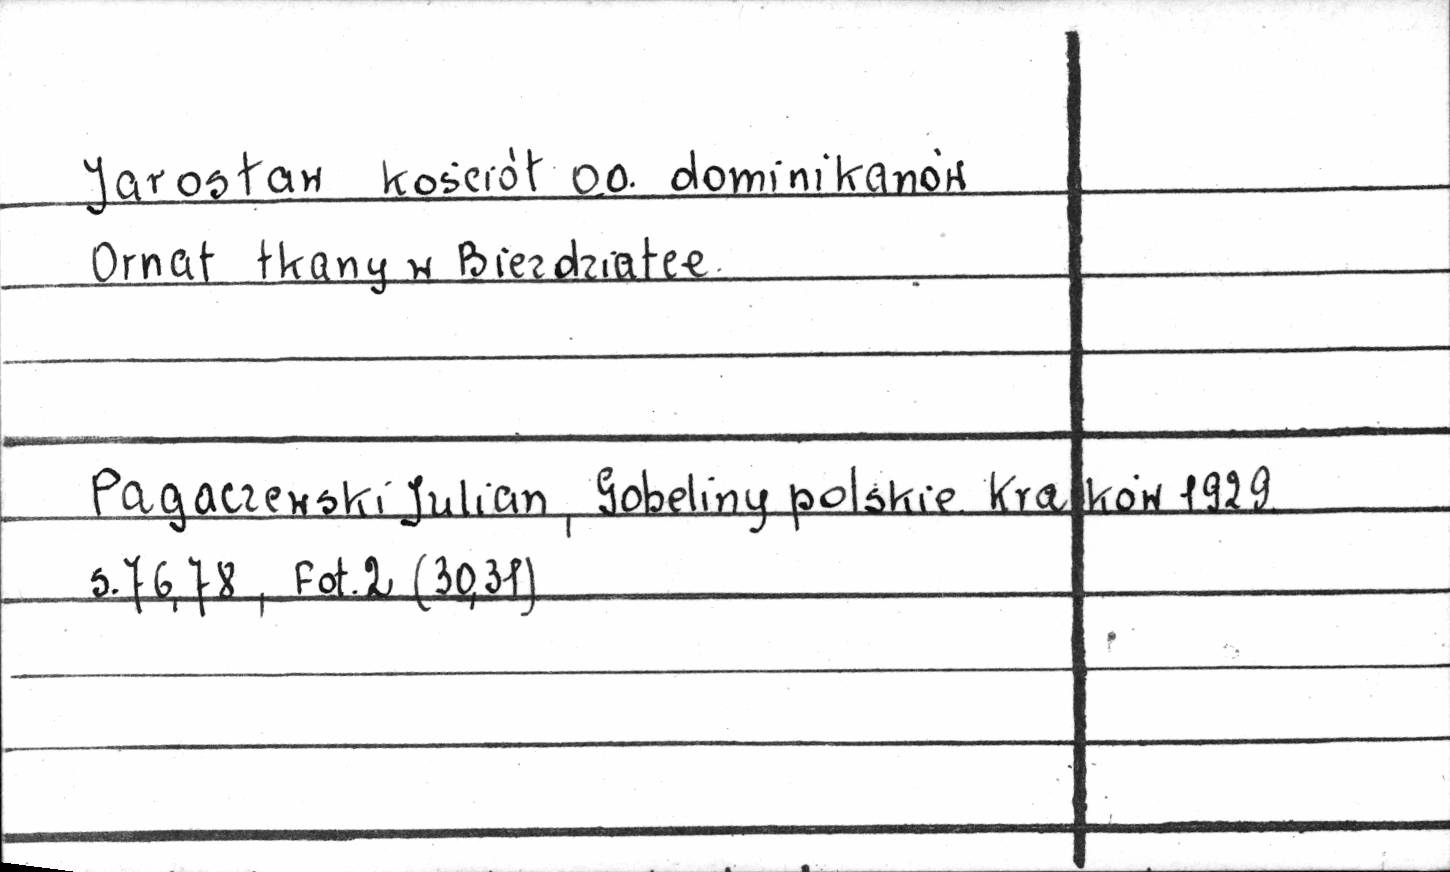 Jarosław kościół oo. dominikanów
Ornat tkany w Bieździatce.
Pagaczewski Julian, Gobeliny polskie. Kraków 1929.
s. 76,78, Fot. 2 (30,31)